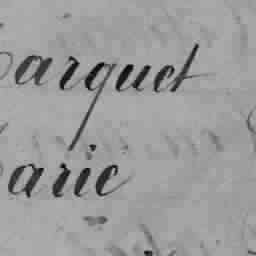 arquet
arie